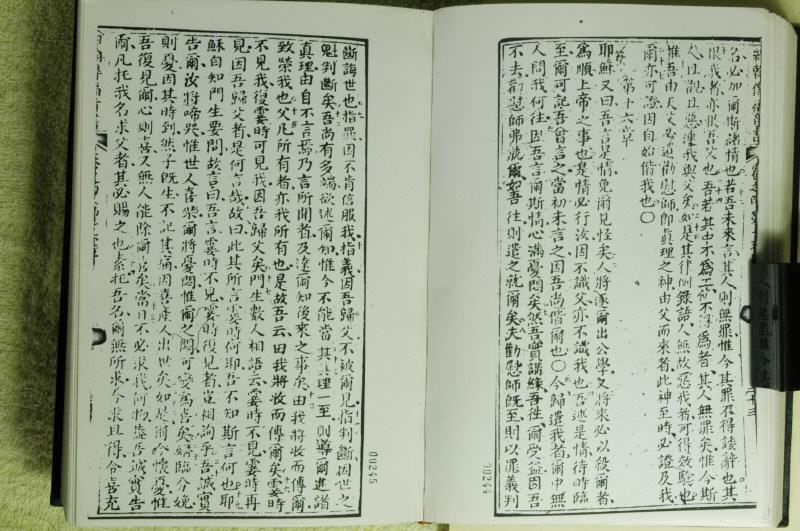 名必加爾斯諸情也若吾未來言其人則無罪惟今其罪不得諉辭也其
恨我者亦恨吾父也吾若其中不爲工他不得爲者其人無罪矣惟今斯
人且觀且惡連我與父矣如是其律例錄語人無故惡我者可得效驗也
惟吾由天父必遣勸慰師即眞理之神由父而來者此神至時必證及我
爾亦可證因自始偕我也〇
第十六章
耶穌又曰吾言是情免爾見怪矣人將逐爾出公學又將來必以殺爾者
爲順上帝之事也是情必行汝因不識父亦不識我也吾述是情待時臨
至爾可記吾曾言之當初未言之因吾尚偕爾也〇今歸遣我者爾中無
人問我何往因吾言爾斯情心滿憂悶矣然吾實講緣吾徃爾受益因吾
不去勸慰師弗就爾如吾往則遣之就爾矣夫勸慰師既至則以罪義判
00244
斷誨世也指罪因不肯信服我指義因吾歸父不被爾見指判斷因世之
魁判斷矣吾尚有多端欲述爾知惟今不能當其眞理一至則導爾進諸
真理由自不言焉乃言所聞者及達爾知後來之事矣由我將收而傳爾
致榮我也父凡所有者亦我所有也是故吾云由我將收而傳爾矣霎時
不見我復霎時可見我因吾歸父矣門生數人相語云霎時不見霎時再
見因吾歸父者是何言哉故曰此其所言霎時何耶吾不知斯言何也耶
穌自知門生要問故言曰吾言霎時不見霎時復見者豈相詢乎吾誠實
告爾汝將啼哭惟世人喜樂爾將憂悶惟爾之悶可變爲喜矣婦臨分娩
則憂因其時到然子既生不記其痛因喜產人出世矣如是爾今懷憂惟
吾復見爾心則喜又無人能除爾喜矣當日不必求我何物葢吾誠實告
爾凡托我名求父者其必賜之也素托吾名爾無所求今求且得令喜充
00245